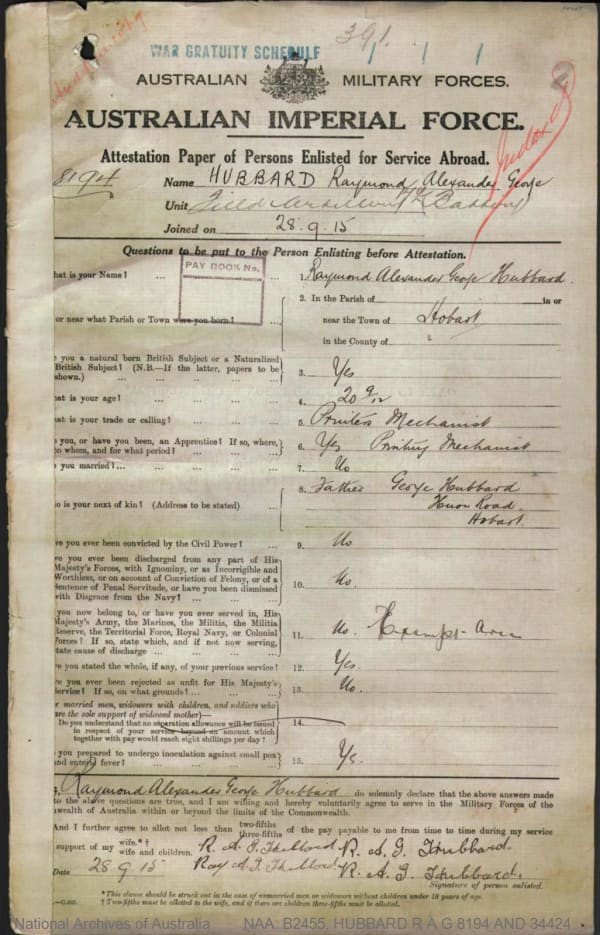 WAR GRATUITY SCHEDULE
391
AUSTRALIAN MILITARY FORCES.
AUSTRALIAN IMPERIAL FORCE.
Indexed
Attestation Paper of Persons Enlisted for Service Abroad.
8194
Name HUBBARD Raymond Alexander George
Unit Field
Joined on 28.9.15
Questions to be put to the Person Enlisting before Attestation.
PAY BOOK No.
hat is your Name? ... 1. Raymond Alexander George Hubbard.
2. In the Parish of in or
or near what Parish or Town were you born? ... near the Town of Hobart
in the County of
e you a natural born British Subject or a Naturalized
British Subject? (N.B.—If the latter, papers to be 3. Yes
shown.) ... ... ... ...
at is your age? ... 4. 20 9/12
at is your trade or calling? ... 5. Printers Mechanist
e you, or have you been, an Apprentice? If so, where, 6. Yes Printing Mechanist
to whom, and for what period? ... ...
e you married?... ... 7. No
8. Father George Hubbard
o is your next of kin? (Address to be stated) ... Huon Road
Hobart.
re you ever been convicted by the Civil Power? ... 9. No
ve you ever been discharged from any part of His
Majesty's Forces, with Ignominy, or as Incorrigible and
Worthless, or on account of Conviction of Felony, or of a 10. No.
Sentence of Penal Servitude, or have you been dismissed
with Disgrace from the Navy? ... ...
you now belong to, or have you ever served in, His
Majesty's Army, the Marines, the Militia, the Militia
Reserve, the Territorial Force, Royal Navy, or Colonial 11. No. Exempt Area
Forces? If so, state which, and if not now serving,
state cause of discharge ... ... ...
ve you stated the whole, if any, of your previous service? 12. Yes.
ve you ever been rejected as unfit for His Majesty's 13. No.
Service? If so, on what grounds? ... ...
r married men, widowers with children, and soldiers who
are the sole support of widowed mother)—
Do you understand that no separation allowance will be issued 14.
in respect of your service beyond an amount which
together with pay would reach eight shillings per day?
you prepared to undergo inoculation against small pox 15. Yes.
and enteric fever? ... ... ...
I, Raymond Alexander George Hubbard do solemnly declare that the above answers made
to the above questions are true, and I am willing and hereby voluntarily agree to serve in the Military Forces of the
wealth of Australia within or beyond the limits of the Commonwealth.
And I further agree to allot not less than two-fifths three-fifths of the pay payable to me from time to time during my service
support of my wife.*† wife and children. R. A. G. Hubbard R. A. G. Hubbard.
Date 28.9.15 Ray A. G. Hubbard R. A. G. Hubbard.
Signature of person enlisted.
*This clause should be struck out in the case of unmarried men or widowers without children under 18 years of age.
† Two-fifths must be allotted to the wife, and if there are children three-fifths must be allotted.
National Archives of Australia NAA: B2455, HUBBARD R A G 8194 AND 34424